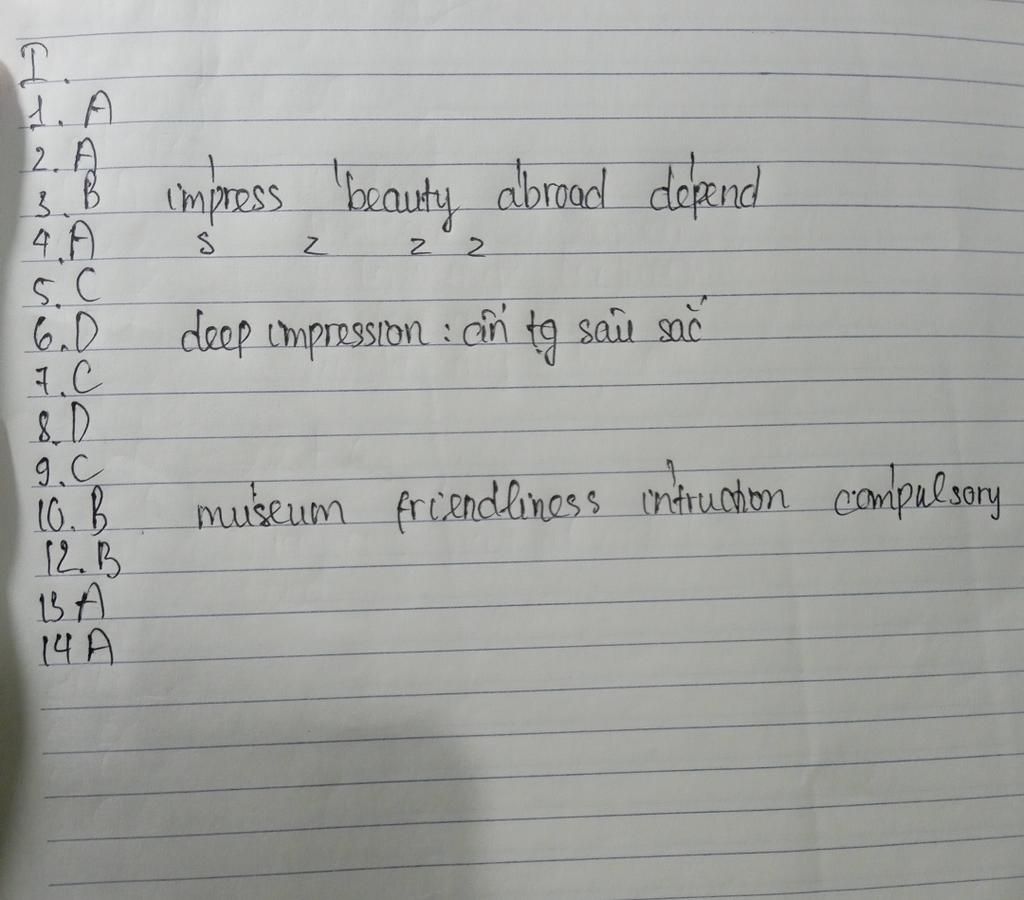 I.
1. A
2. A
3. B impress 'beauty a'broad depend
4. A s z z z
5. C
6. D deep impression: ấn tg sâu sắc
7. C
8. D
9. C
10. B museum friendliness intruction compulsory
12. B
13 A
14 A